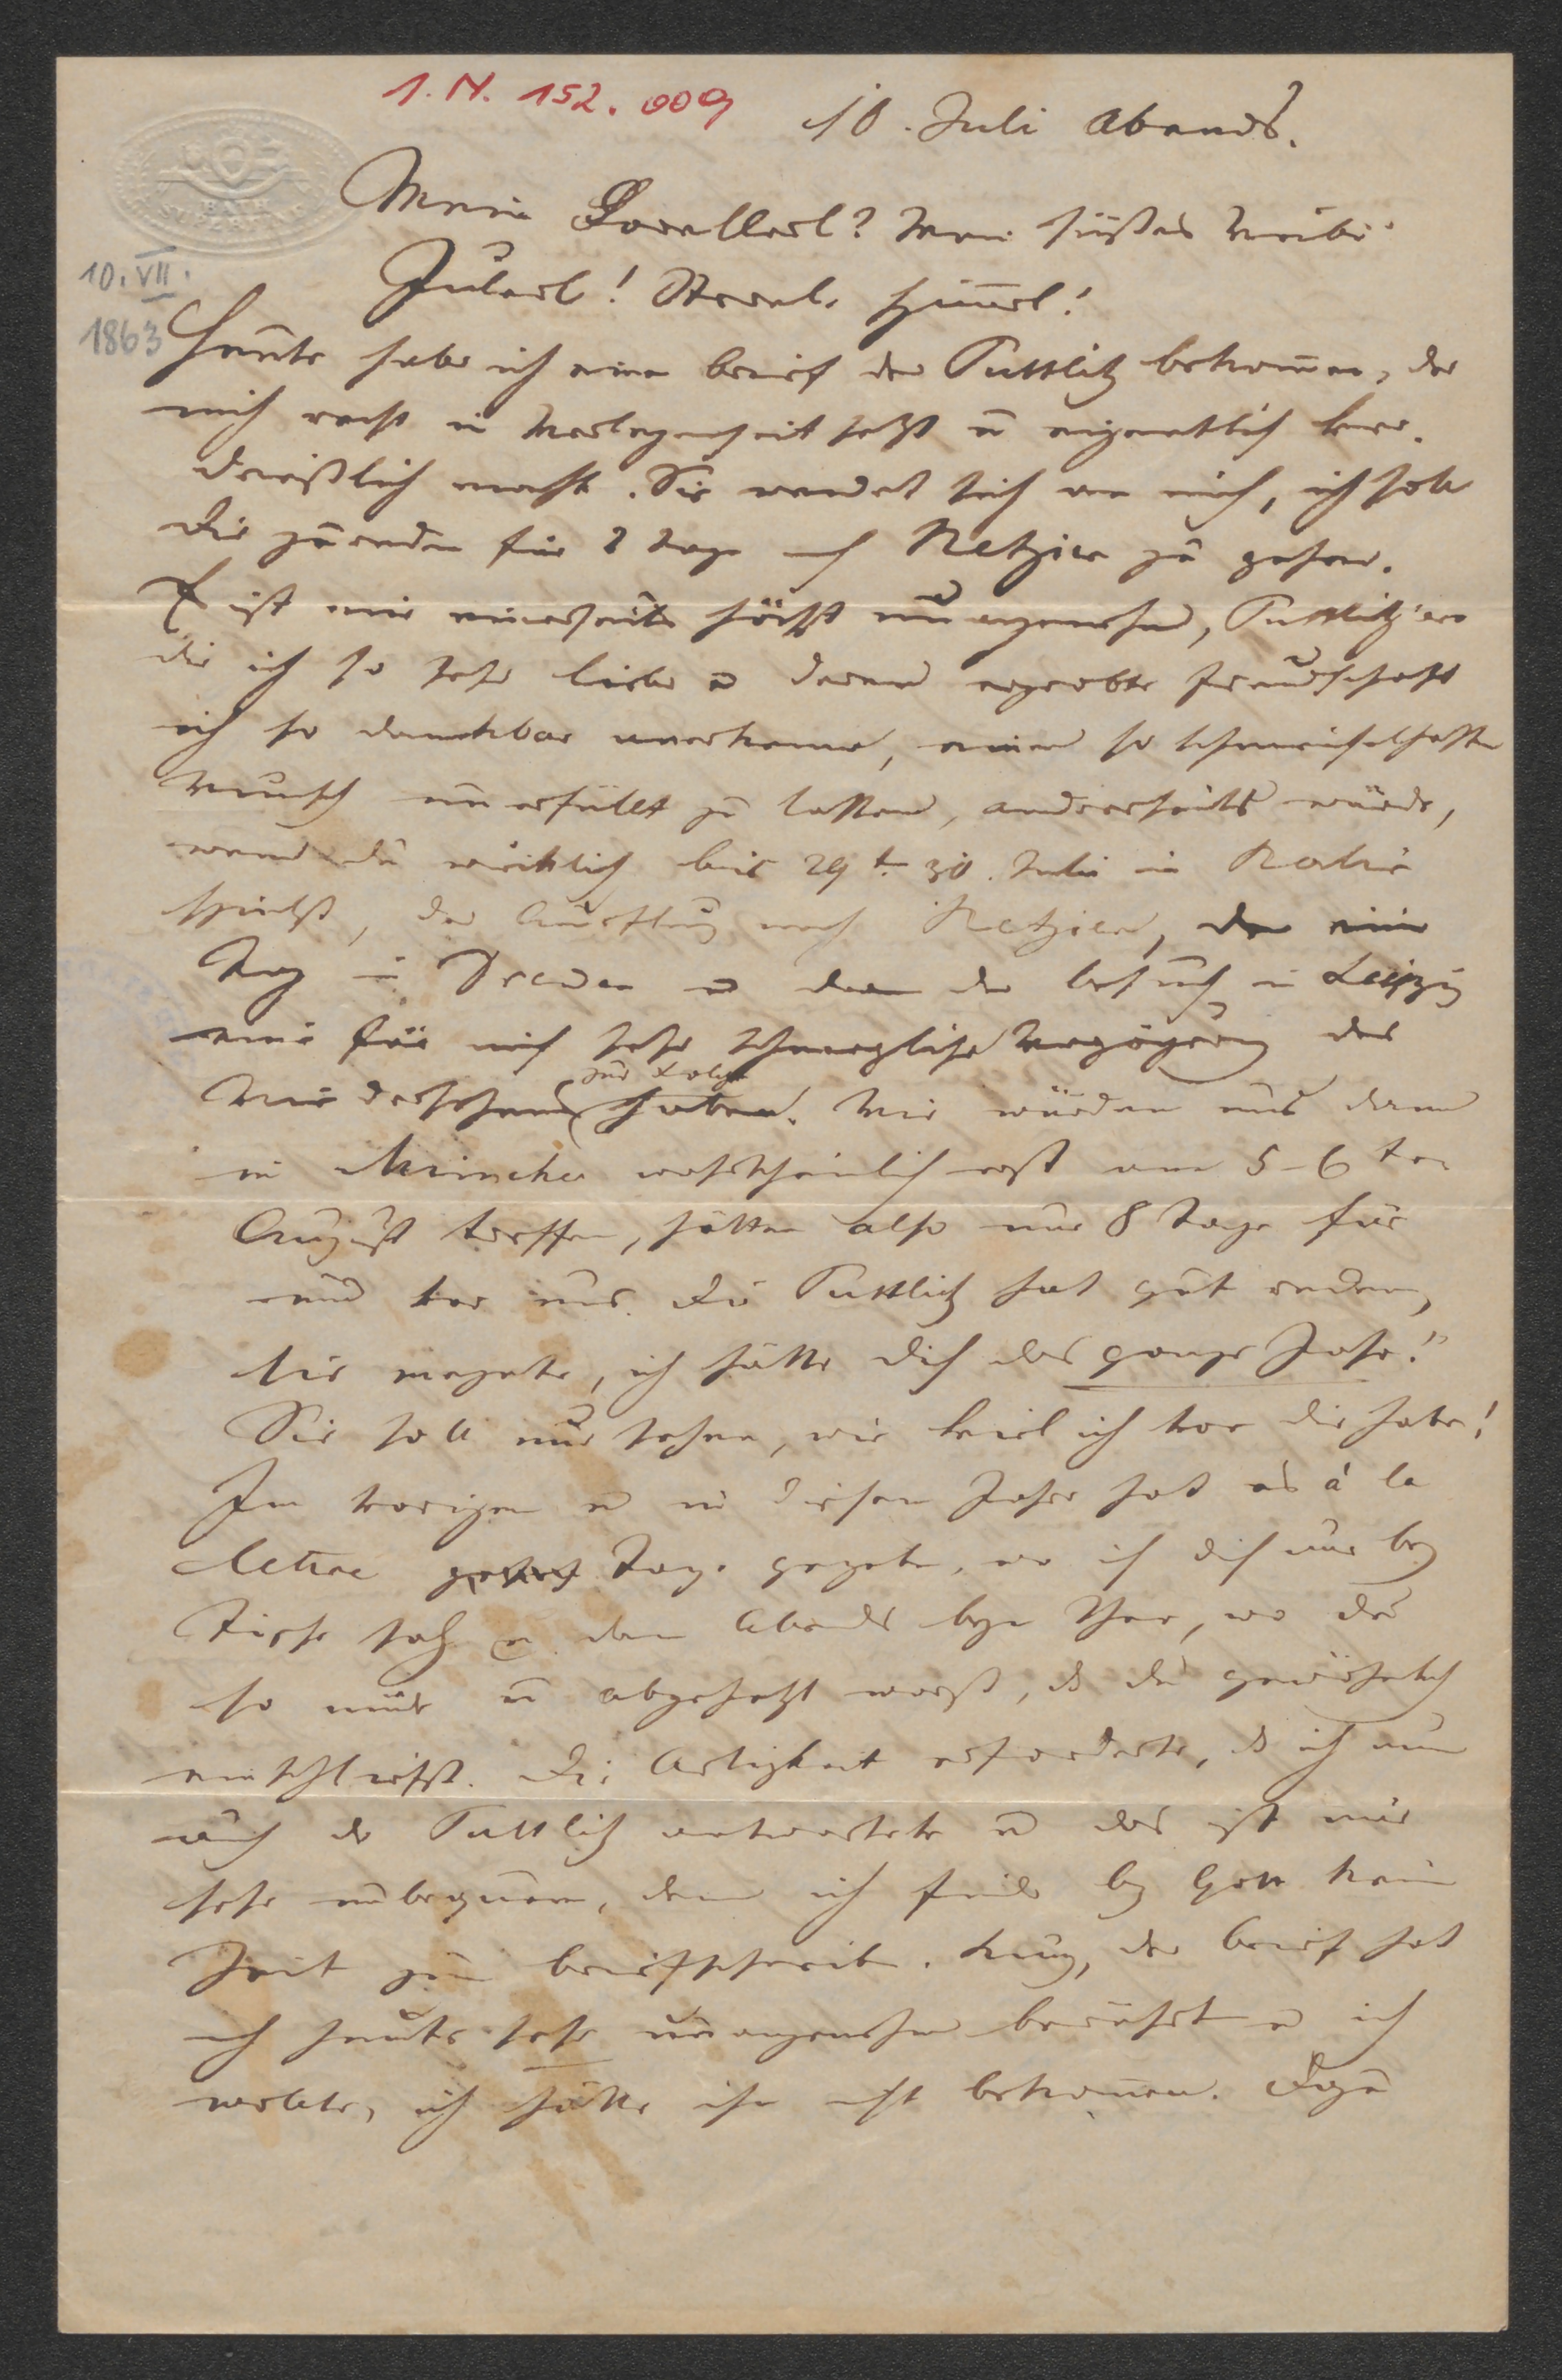 I. N. 152.009
10. Juli Abends.
Mein Forellerl? Mein süßes Weibi
Juberl! Strewl. Himerl!
10. VII.
1863
Heute habe ich einen Brief der Puttlitz bekom̅en, der
mich recht in Verlegenheit setzt u eigentlich ver-
drießlich macht. Sie wendet sich an mich, ich soll
Dir zureden für 2 Tage nach Retzien zu gehen.
Es ist mir einerseits höchst unangenehm, Puttlitz'ens
die ich so sehr liebe u deren erprobte Freundschaft
ich so dankbar anerkenne, einen so schmeichelhaften
Wunsch unerfüllt zu lassen, anderseits würde,
wenn du wirklich bis 29 t 30. Juli in
spielst, der Ausflug nach Retzien, dann ein
Tag in Dresden u dann der Besuch in Leipzig
eine für mich sehr schmerzliche Verzögerung des
Wiedersehens zur Folge haben. Wir würden uns dann
in München wahrscheinlich erst am 5-6 ten
August treffen, hätten also nur 8 Tage für
und vor uns. Die Puttlitz hat gut reden,
sie meynte, ich hätte dich das ganze Jahr!"
Sie soll nur sehen, wie viel ich von dir habe!
Im vorigen u in diesem Jahre hat es à la
lettre Tage gegeben, wo ich dich nur bey
Tische sah u dann Abends beym Thee, wo du
so müde u abgehetzt warst, dß du gewöhnlich
einschliefst. Die Artigkeit erforderte, dß ich nun
auch der Puttlitz antwortete u das ist mir
sehr unbequem, denn ich finde bey Gott keine
Zeit zum Briefschreiben. Kurz, der Brief hat
mich heute sehr unangenehm berührt u ich
wollte, ich hätte ihn nicht bekom̅en. Dazu